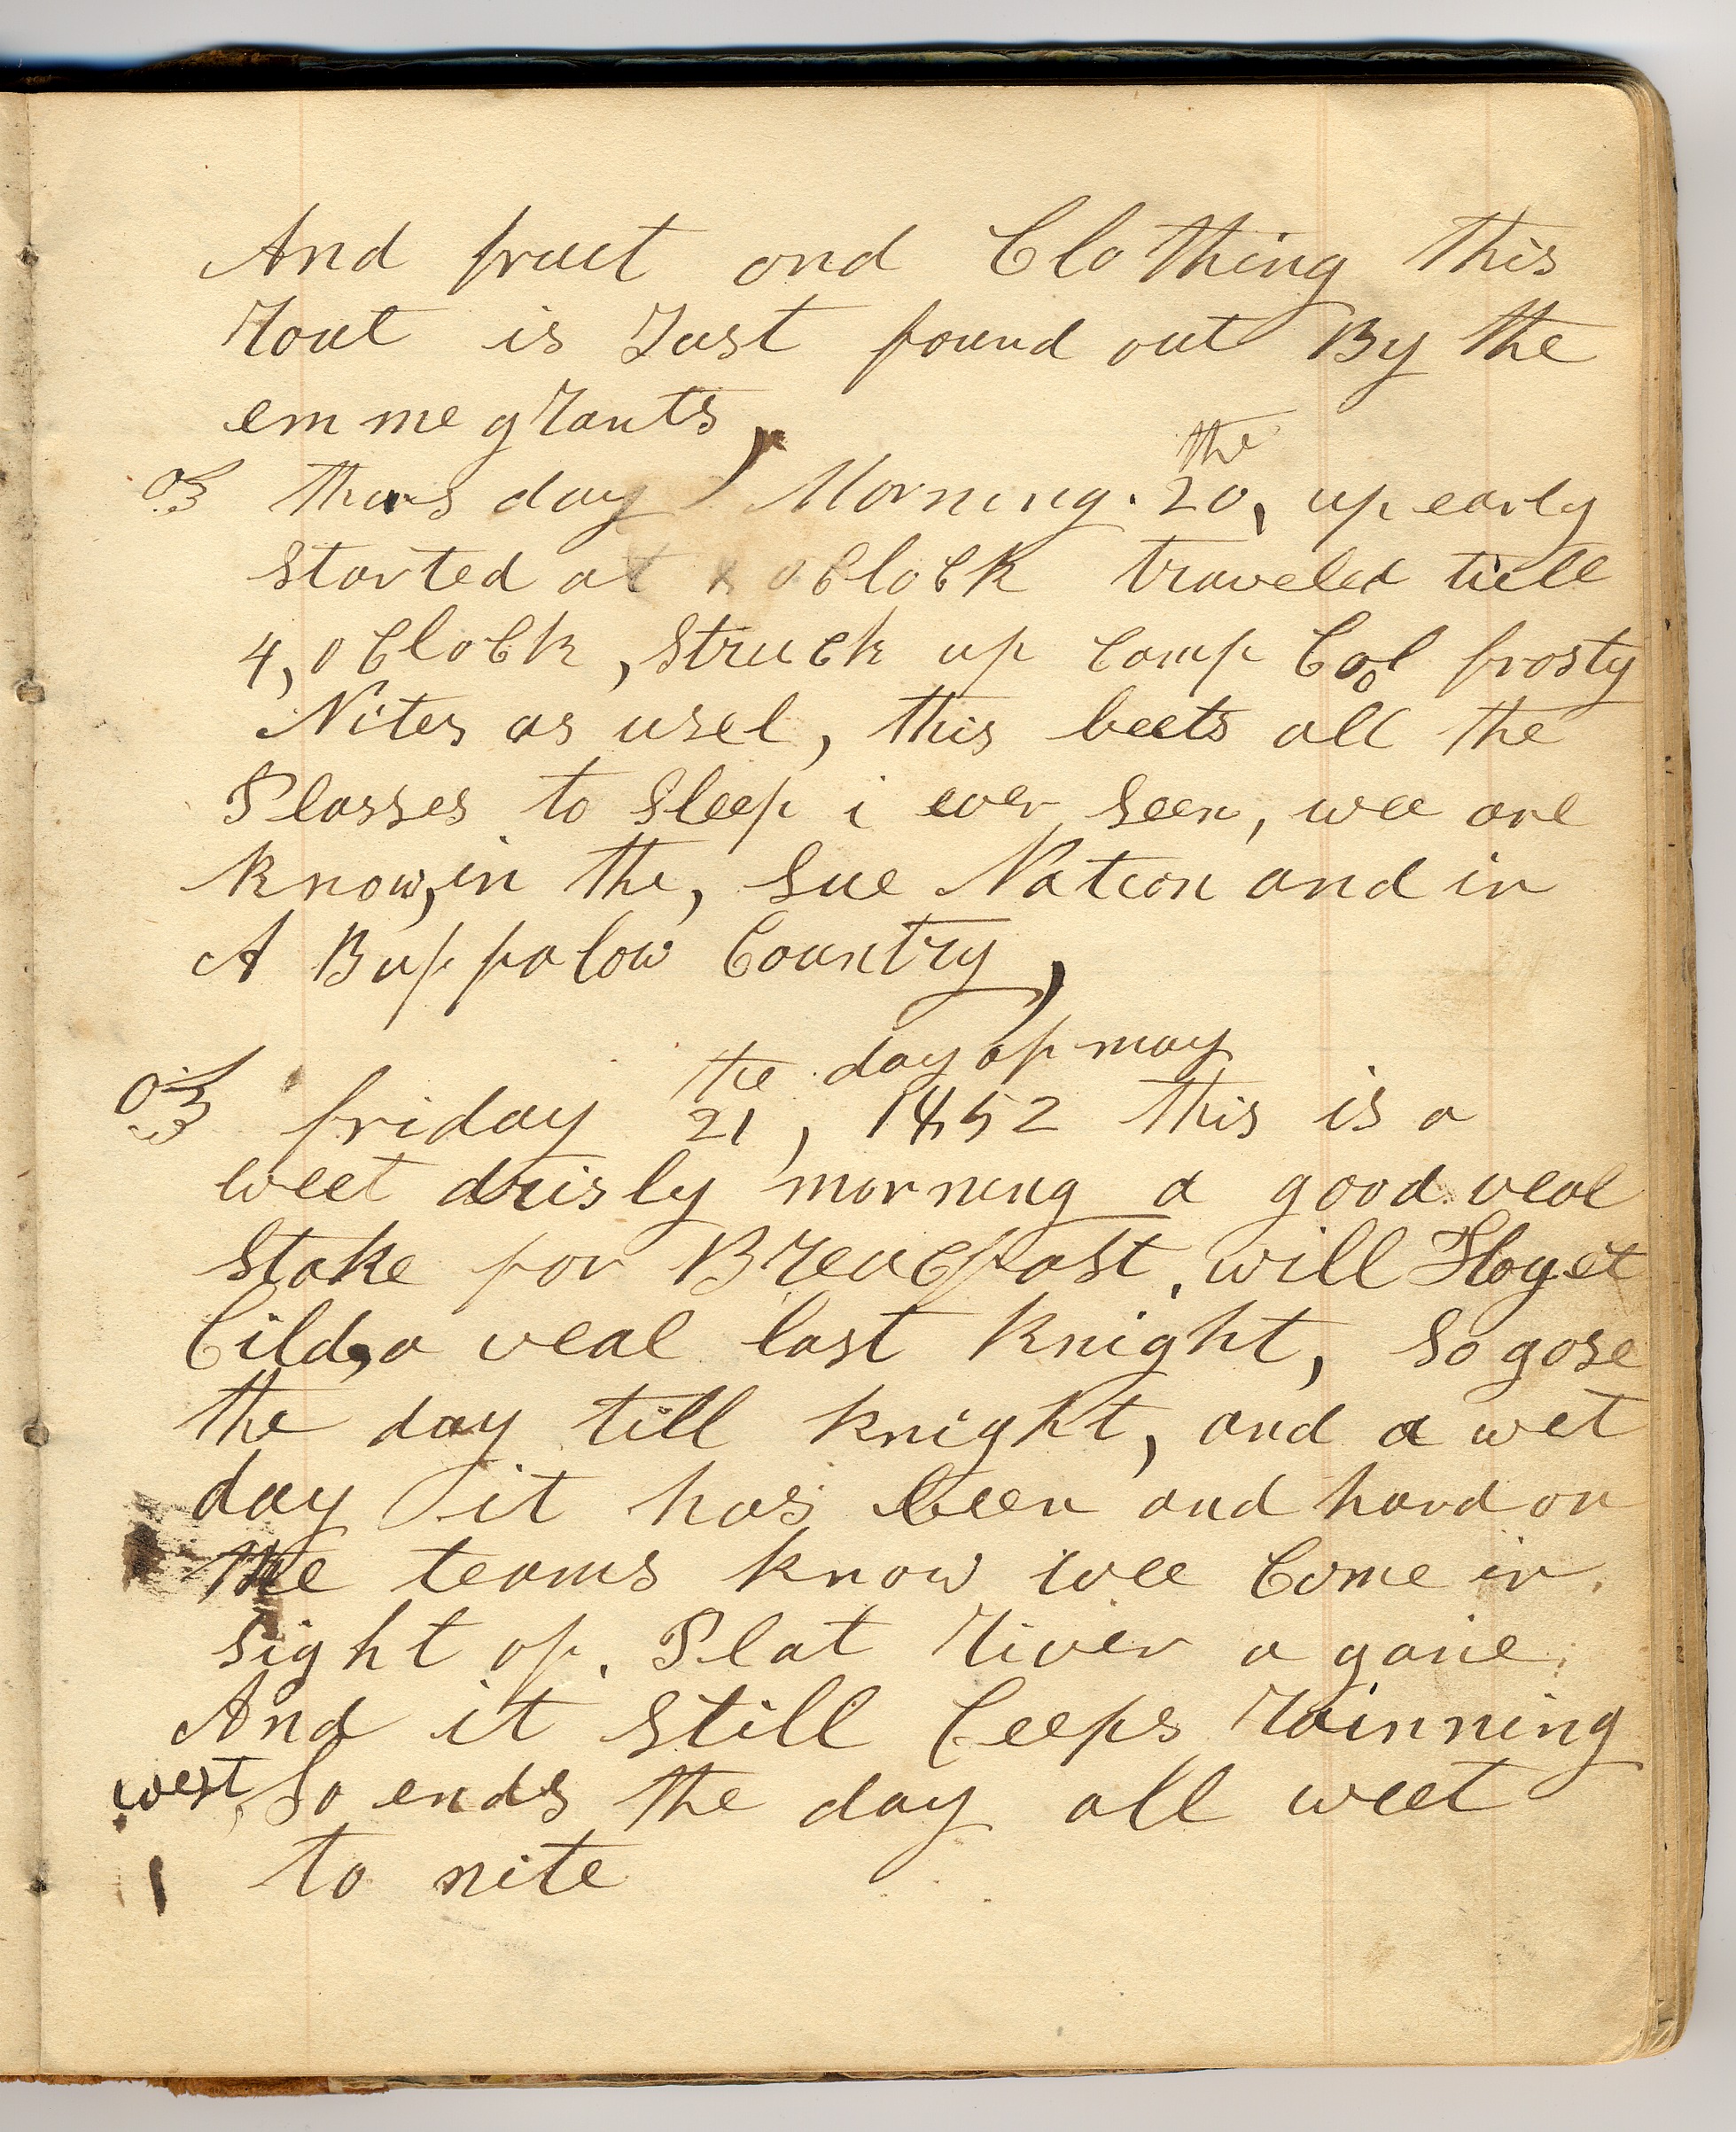 And fruet and Clothing this
rout is Just found out By the
em me grants,
thurs day Morning. the 20, up early
started at oCloCk traveled till
4, oCloCk, struCk up Camp Cool frosty
Nites as usel, this beets all the
Plasses to Sleep i ever seen, wee are
know, in the, Sue Nation and in
A Buffalow Country,
friday the 21, day of may 1852 this is a
weet drisly morning a good veal
stake for BreaCfast, will Hoget
Cild, a veal last knight, So gose
the day till knight, and a wet
day it has been and hard on
the teams know wee Come in
sight of. Plat river a gane,
And it still Ceeps rainning
west, So ends the day all weet
to nite